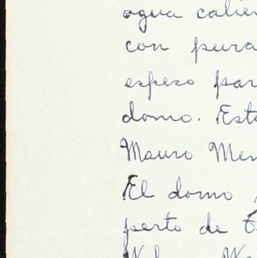 agua calie
con pura
espeso par
domo. Est
Mauro Men
El domo
perto de